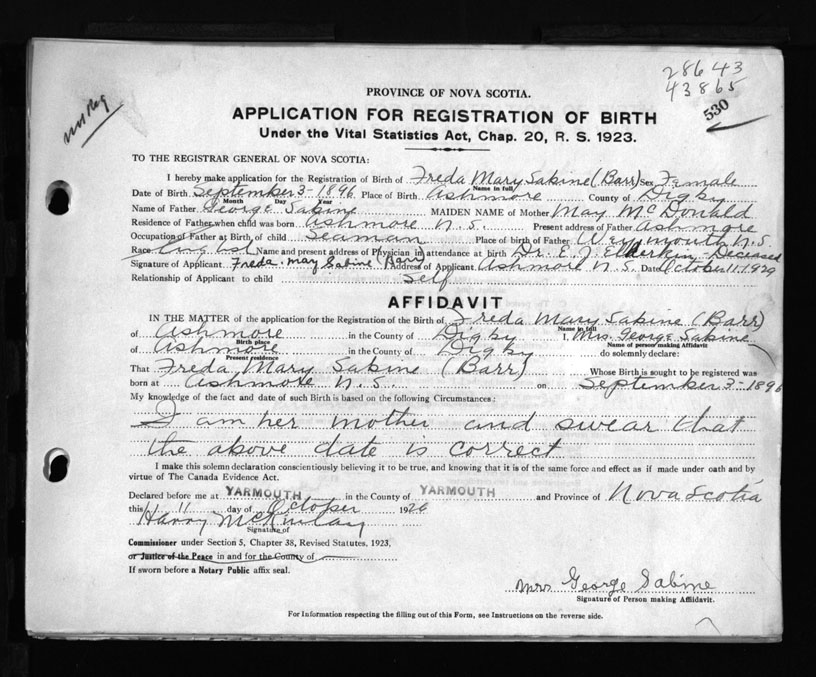 28643
43865
530
Not Reg
PROVINCE OF NOVA SCOTIA.
APPLICATION FOR REGISTRATION OF BIRTH
Under the Vital Statistics Act, Chap. 20, R. S. 1923.
TO THE REGISTRAR GENERAL OF NOVA SCOTIA:
I hereby make application for the Registration of Birth of Freda Mary Sabine (Barr) Sex Female
Name in full
Date of Birth September 3 - 1896 Place of Birth Ashmore County of Digby
Month Day Year
Name of Father George Sabine MAIDEN NAME of Mother May McDonald
Residence of Father when child was born Ashmore N.S. Present address of Father Ashmore
Occupation of Father at Birth of child Seaman Place of birth of Father Weymouth N.S.
Race English Name and present address of Physician in attendance at birth Dr. E. J. Elderkin - Deceased
Signature of Applicant Freda. May Sabine (Barr) Address of Applicant Ashmore N.S. Date October 11. 1929
Relationship of Applicant to child Self
AFFIDAVIT
IN THE MATTER of the application for the Registration of the Birth of Freda Mary Sabine (Barr)
Name in full
of Ashmore in the County of Digby I, Mrs. George Sabine
Birth place Name of person making Affidavit
of Ashmore in the County of Digby do solemnly declare:
Present residence
That Freda Mary Sabine (Barr) Whose Birth is sought to be registered was
born at Ashmore N.S. on September 3 - 1896
My knowledge of the fact and date of such Birth is based on the following Circumstances:
I am her mother and swear that
the above date is correct
I make this solemn declaration conscientiously believing it to be true, and knowing that it is of the same force and effect as if made under oath and by
virtue of The Canada Evidence Act.
Declared before me at YARMOUTH in the County of YARMOUTH and Province of Nova Scotia
this 11 day of October 1926
Harry McKinlay
Signature of
Commissioner under Section 5, Chapter 38, Revised Statutes, 1923,
or Justice of the Peace in and for the County of
If sworn before a Notary Public affix seal.
Mrs George Sabine
Signature of Person making Affidavit.
For Information respecting the filling out of this Form, see Instructions on the reverse side.